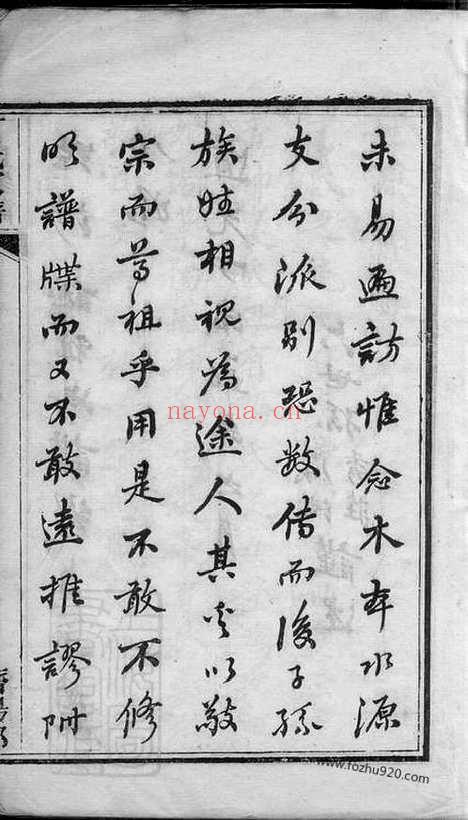 未易遍訪惟念木本水源
支分派別恐數傳而後子孫
族姓相視為途人其以敬
宗而尊祖乎用是不敢不修
明譜牒而又不敢遠推謬附
nayona.cn
www.fozhu920.com